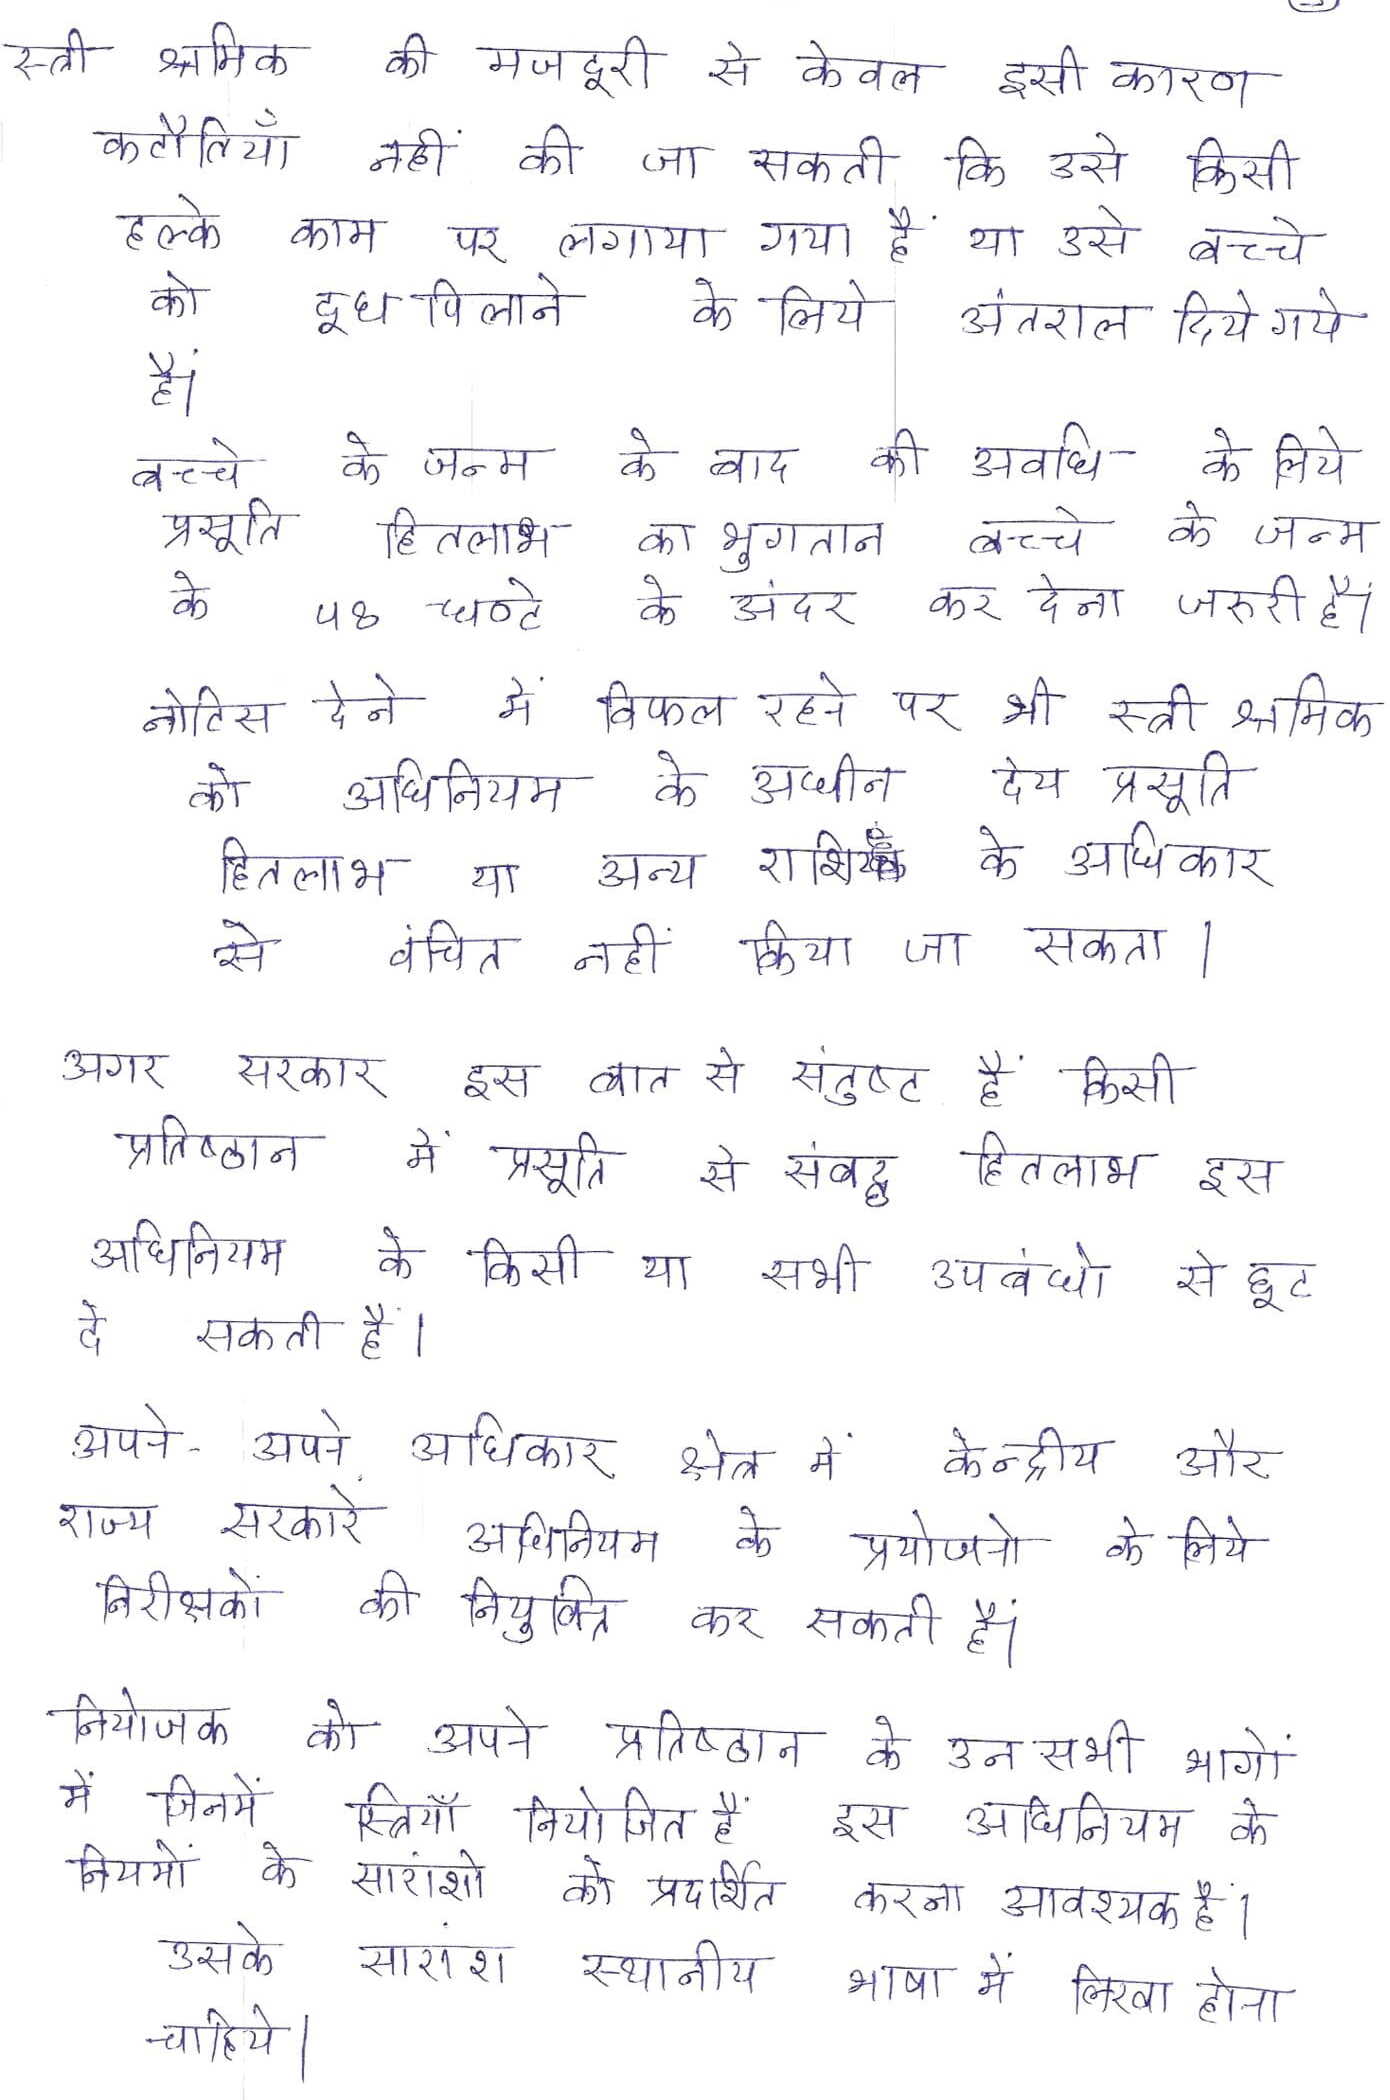 स्त्री श्रमिक की मजदूरी से केवल इसी कारण
कटौतियाँ नहीं की जा सकती कि उसे किसी
हल्के काम पर लगाया गया हैं या उसे बच्चे
को दूध पिलाने के लिये अंतराल दिये गये
हैं।
बच्चे के जन्म के बाद की अवधि के लिये
प्रसूति हितलाभ का भुगतान बच्चे के जन्म
के 48 घण्टे के अंदर कर देना जरुरी हैं।
नोटिस देने में विफल रहने पर भी स्त्री श्रमिक
को अधिनियम के अधीन देय प्रसूति
हितलाभ या अन्य के अधिकार
से वंचित नहीं किया जा सकता।
अगर सरकार इस बात से संतुष्ट हैं किसी
प्रतिष्ठान में प्रसूति से संबद्ध हितलाभ इस
अधिनियम के किसी या सभी उपबंधो से छूट
दे सकती हैं।
अपने-अपने अधिकार क्षेत्र में केन्द्रीय और
राज्य सरकारें अधिनियम के प्रयोजनो के लिये
निरीक्षकों की नियुक्ति कर सकती हैं।
नियोजक को अपने प्रतिष्ठान के उन सभी भागों
में जिनमें स्त्रियाँ नियोजित हैं इस अधिनियम के
नियमों के सारांशो को प्रदर्शित करना आवश्यक हैं।
उसके सारांश स्थानीय भाषा में लिखा होना
चाहिये।